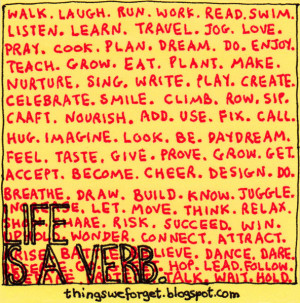 WALK. LAUGH. RUN. WORK. READ. SWIM.
LISTEN. LEARN. TRAVEL. JOG. LOVE.
PRAY. COOK. PLAN. DREAM. DO. ENJOY.
TEACH. GROW. EAT. PLANT. MAKE.
NURTURE. SING. WRITE. PLAY. CREATE.
CELEBRATE. SMILE. CLIMB. ROW. SIP.
CRAFT. NOURISH. ADD. USE. FIX. CALL.
HUG. IMAGINE. LOOK. BE. DAYDREAM.
FEEL. TASTE. GIVE. PROVE. GROW. GET.
ACCEPT. BECOME. CHEER. DESIGN. DO.
BREATHE. DRAW. BUILD. KNOW. JUGGLE.
LET. MOVE. THINK. RELAX.
SHARE. RISK. SUCCEED. WIN.
WONDER. CONNECT. ATTRACT.
DANCE. DARE.
HOP. LEAD. FOLLOW.
TALK. WAIT. HOLD.
LIFE
IS A VERB.
thingsweforget.blogspot.com